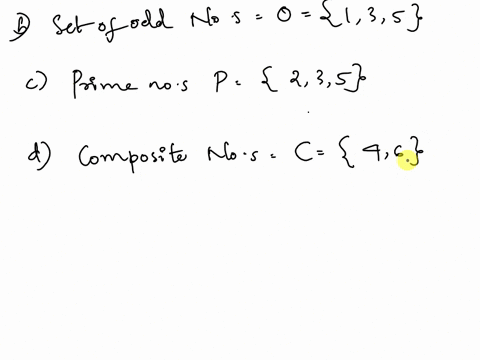 b) Set of odd No s = O = {1, 3, 5}
c) Prime no.s P = { 2, 3, 5}
d) Composite No.s = C = { 4, 6. }